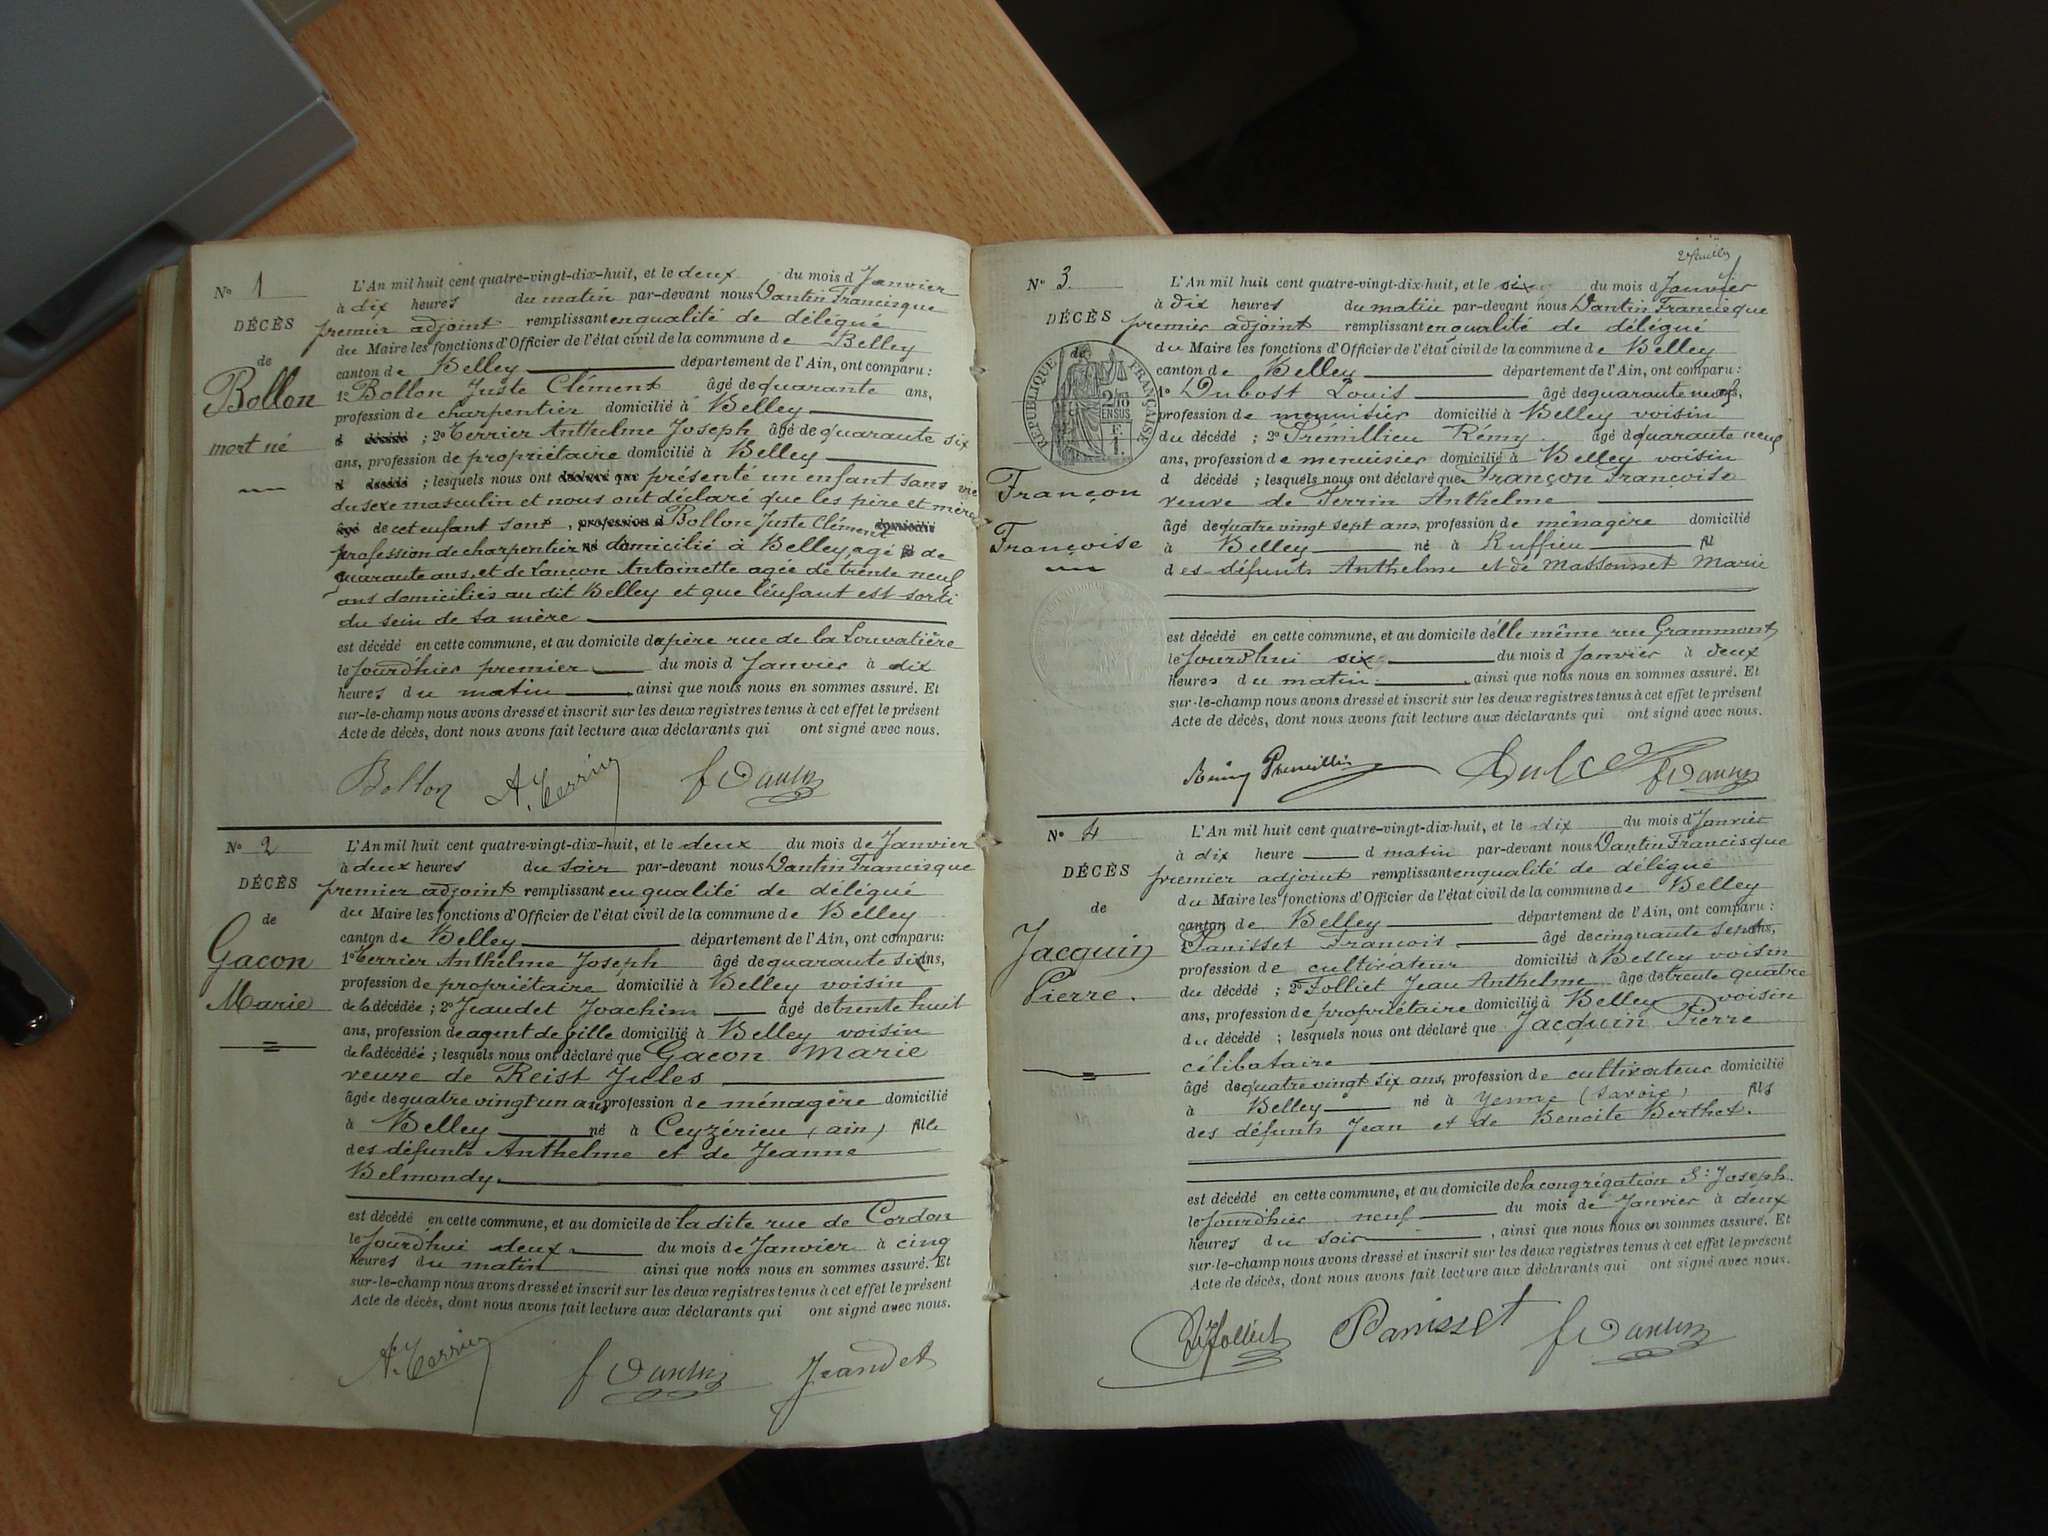 N° 1
DÉCÈS
de
Bollon
mort né
L'An mil huit cent quatre-vingt-dix-huit, et le deux du mois d Janvier
à dix heures du matin par-devant nous Dantin Francisque
premier adjoint remplissant en qualité de délégué
du Maire les fonctions d'Officier de l'état civil de la commune de Belley
canton de Belley département de l'Ain, ont comparu :
1° Bollon Juste Clément âgé de quarante ans,
profession de charpentier domicilié à Belley
d décédé ; 2° Terrier Anthelme Joseph âgé de quarante six
ans, profession de propriétaire domicilié à Belley
d décédé ; lesquels nous ont déclaré que présenté un enfant sans vie
du sexe masculin et nous ont déclaré que les père et mère
âgé de cet enfant sont, profession d Bollon Juste Clément domicilié
profession de charpentier né domicilié à Belley, agé de
quarante ans, et de Lançon Antoinette agée de trente neuf
ans domiciliés au dit Belley et que l'enfant est sorti
du sein de sa mère
est décédé en cette commune, et au domicile du père rue de la Louvatière
le jourd'hier premier du mois d Janvier à dix
heures du matin ainsi que nous nous en sommes assuré. Et
sur-le-champ nous avons dressé et inscrit sur les deux registres tenus à cet effet le présent
Acte de décès, dont nous avons fait lecture aux déclarants qui ont signé avec nous.
Bollon A. Terrier f Dantin
N° 2
DÉCÈS
de
Gacon
Marie
L'An mil huit cent quatre-vingt-dix-huit, et le deux du mois de Janvier
à deux heures du soir par-devant nous Dantin Francisque
premier adjoint remplissant en qualité de délégué
du Maire les fonctions d'Officier de l'état civil de la commune de Belley
canton de Belley département de l'Ain, ont comparu:
1° Terrier Anthelme Joseph âgé de quarante six ans,
profession de propriétaire domicilié à Belley voisin
de la décédée ; 2° Jeandet Joachim âgé de trente huit
ans, profession de agent de ville domicilié à Belley voisin
de la décédée ; lesquels nous ont déclaré que Gacon Marie
veuve de Reist Jules
âgée de quatre vingt un ans profession de ménagère domicilié
à Belley né à Ceyzérieu (ain) fille
des défunts Anthelme et de Jeanne
Belmondy
est décédé en cette commune, et au domicile de la dite rue de Cordon
le jourd'hui deux du mois de Janvier à cinq
heures du matin ainsi que nous nous en sommes assuré. Et
sur-le-champ nous avons dressé et inscrit sur les deux registres tenus à cet effet le présent
Acte de décès, dont nous avons fait lecture aux déclarants qui ont signé avec nous.
A. Terrier f Dantin Jeandet
N° 3
DÉCÈS
de
RÉPUBLIQUE FRANÇAISE
Françon
Françoise
L'An mil huit cent quatre-vingt-dix-huit, et le six du mois d Janvier
à dix heures du matin par-devant nous Dantin Francisque
premier adjoint remplissant en qualité de délégué
du Maire les fonctions d'Officier de l'état civil de la commune de Belley
canton de Belley département de l'Ain, ont comparu :
1° Dubost Louis âgé de quarante neuf ans,
profession de menuisier domicilié à Belley voisin
du décédé ; 2° Prémillieu Rémy âgé de quarante neuf
ans, profession de menuisier domicilié à Belley voisin
d décédé ; lesquels nous ont déclaré que Françon Françoise
veuve de Perrin Anthelme
âgé de quatre vingt sept ans, profession de ménagère domicilié
à Belley né à Ruffieu fil
des défunts Anthelme et de Massonnet Marie
est décédé en cette commune, et au domicile d'elle même rue Grammont
le jourd'hui six du mois d Janvier à deux
heures du matin ainsi que nous nous en sommes assuré. Et
sur-le-champ nous avons dressé et inscrit sur les deux registres tenus à cet effet le présent
Acte de décès, dont nous avons fait lecture aux déclarants qui ont signé avec nous.
f Dantin
N° 4
DÉCÈS
de
Jacquin
Pierre.
L'An mil huit cent quatre-vingt-dix-huit, et le dix du mois d Janvier
à dix heure d matin par-devant nous Dantin Francisque
premier adjoint remplissant en qualité de délégué
du Maire les fonctions d'Officier de l'état civil de la commune de Belley
canton de Belley département de l'Ain, ont comparu :
1° Panisset François âgé de cinquante sept ans,
profession de cultivateur domicilié à Belley voisin
du décédé ; 2° Folliet Jean Anthelme âgé de trente quatre
ans, profession de propriétaire domicilié à Belley voisin
du décédé ; lesquels nous ont déclaré que Jacquin Pierre
célibataire
âgé de quatre vingt six ans, profession de cultivateur domicilié
à Belley né à Yenne (Savoie) fils
des défunts Jean et de Benoite Berthet.
est décédé en cette commune, et au domicile de la congrégation St Joseph.
le jourd'hier neuf du mois de Janvier à deux
heures du soir, ainsi que nous nous en sommes assuré. Et
sur-le-champ nous avons dressé et inscrit sur les deux registres tenus à cet effet le présent
Acte de décès, dont nous avons fait lecture aux déclarants qui ont signé avec nous.
Folliet Panisset f Dantin